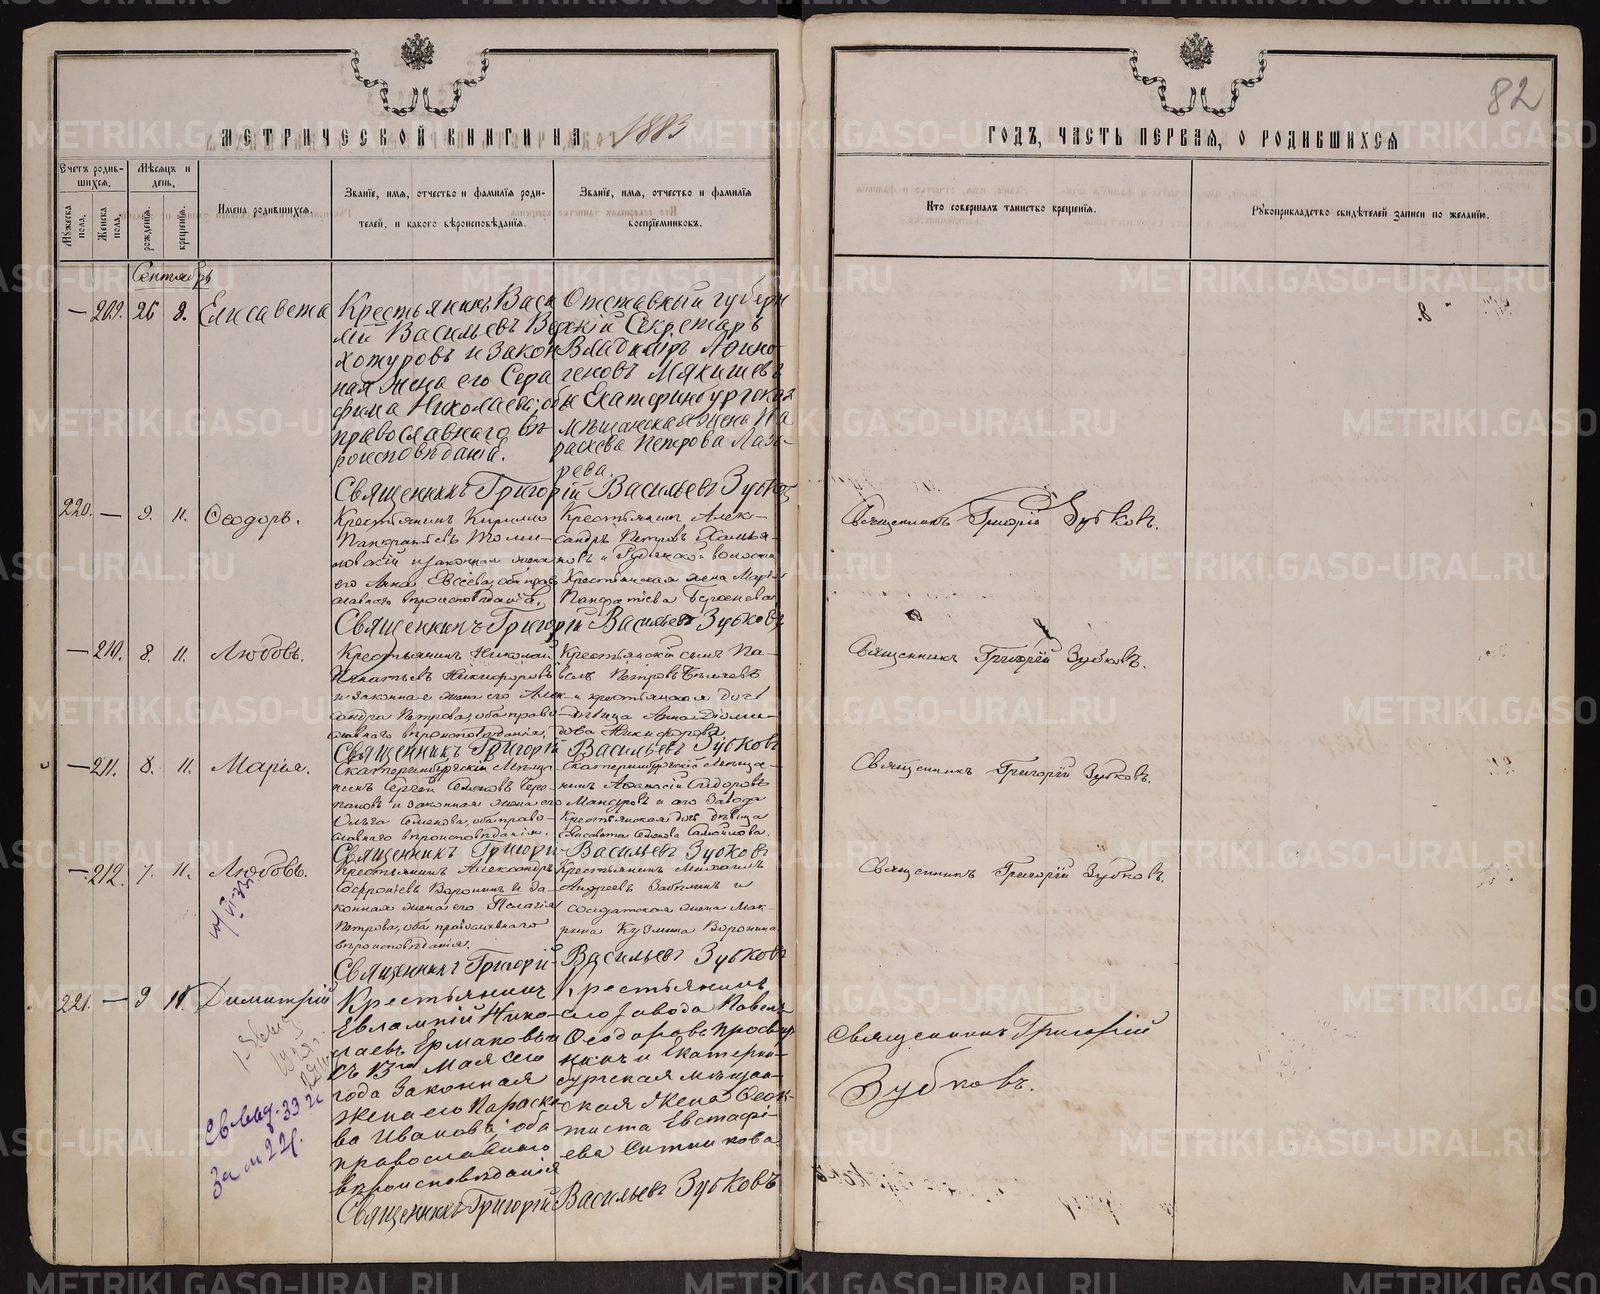 82
МЕТРИЧЕСКОЙ КНИГИ НА 1883
ГОДЪ, ЧАСТЬ ПЕРВАЯ, О РОДИВШИХСЯ
Счетъ родив-
шихся.
Мѣсяцъ и
день,
Мужеска
пола,
Женска
пола,
рожденія.
крещенія.
Имена родившихся.
Званіе, имя, отчество и фамилія роди-
телей, и какого вѣроисповѣданія.
Званіе, имя, отчество и фамилія
воспріемниковъ.
Кто совершалъ таинство крещенія.
Рукоприкладство свидѣтелей записи по желанію.
Сентябрь
— 209. 26 8. Елисавета
Крестьянинъ Васи
лій Васильевъ Вер
хотуровъ и закон
ная жена его Сера
фима Николаева, оба
православнаго вѣ-
роисповѣданія.
Отставный губерн
скій Секретарь
Владиміръ Аѳино-
геновъ Мякишевъ
и Екатеринбургская
мѣщанская жена Па
раскева Петрова Лаза-
рева.
Священникъ Григорій Васильевъ Зубковъ
220. — 9. 11. Ѳеодоръ.
Крестьянинъ Кирилло
Панкратьевъ
и законная жена
его Анна Евсеева, оба право
славнаго вѣроисповѣданія,
Крестьянинъ Алек-
сандръ Петровъ
волости
Крестьянская жена Марія
Священникъ Григорій Зубковъ.
Священникъ Григорій Васильевъ Зубковъ
— 210. 8. 11. Любовь.
Крестьянинъ Николай
Игнатьевъ Никифоровъ
и законная жена его Алек-
сандра Петрова, оба право-
славнаго вѣроисповѣданія,
Крестьянскій сынъ Па-
велъ Петровъ Бѣляевъ
и крестьянская дочь
дѣвица Анна Діоми-
дова Никифорова.
Священникъ Григорій Зубковъ.
Священникъ Григорій Васильевъ Зубковъ
— 211. 8. 11. Марья.
Екатеринбургскій Мѣща-
нинъ Сергей Семеновъ
и законная жена его
Ольга Семенова, оба право-
славнаго вѣроисповѣданія.
Екатеринбургскій Мѣща-
нинъ Аѳанасій Сидоровъ
и его Завода
Крестьянская дочь дѣвица
Елисавета Семенова Самойлова.
Священникъ Григорій Зубковъ.
Священникъ Григорій Васильевъ Зубковъ
— 212. 7. 11. Любовь.
Крестьянинъ Александръ
Софроніевъ Воронинъ и за-
конная жена его Пелагія
Петрова, оба православнаго
вѣроисповѣданія.
Крестьянинъ Михаилъ
Андреевъ и
солдатская жена Мак-
рина Кузмина Воронина
Священникъ Григорій Зубковъ.
Священникъ Григорій Васильевъ Зубковъ
221. — 9 11. Димитрій
Крестьянинъ
Евлампій Нико-
лаевъ Ермаковъ и
съ 13го Мая сего
года Законная
жена его Параске
ва Иванова, оба
православнаго
вѣроисповѣданія
Крестьянинъ
сего Завода Павелъ
Ѳеодоровъ Просвир
нинъ и Екатерин-
бургская мѣщан-
ская Жена Ѳеок-
тиста Евстафі-
ева Ситникова
Священникъ Григорій
Зубковъ.
Священникъ Григорій Васильевъ Зубковъ
METRIKI.GASO-URAL.RU